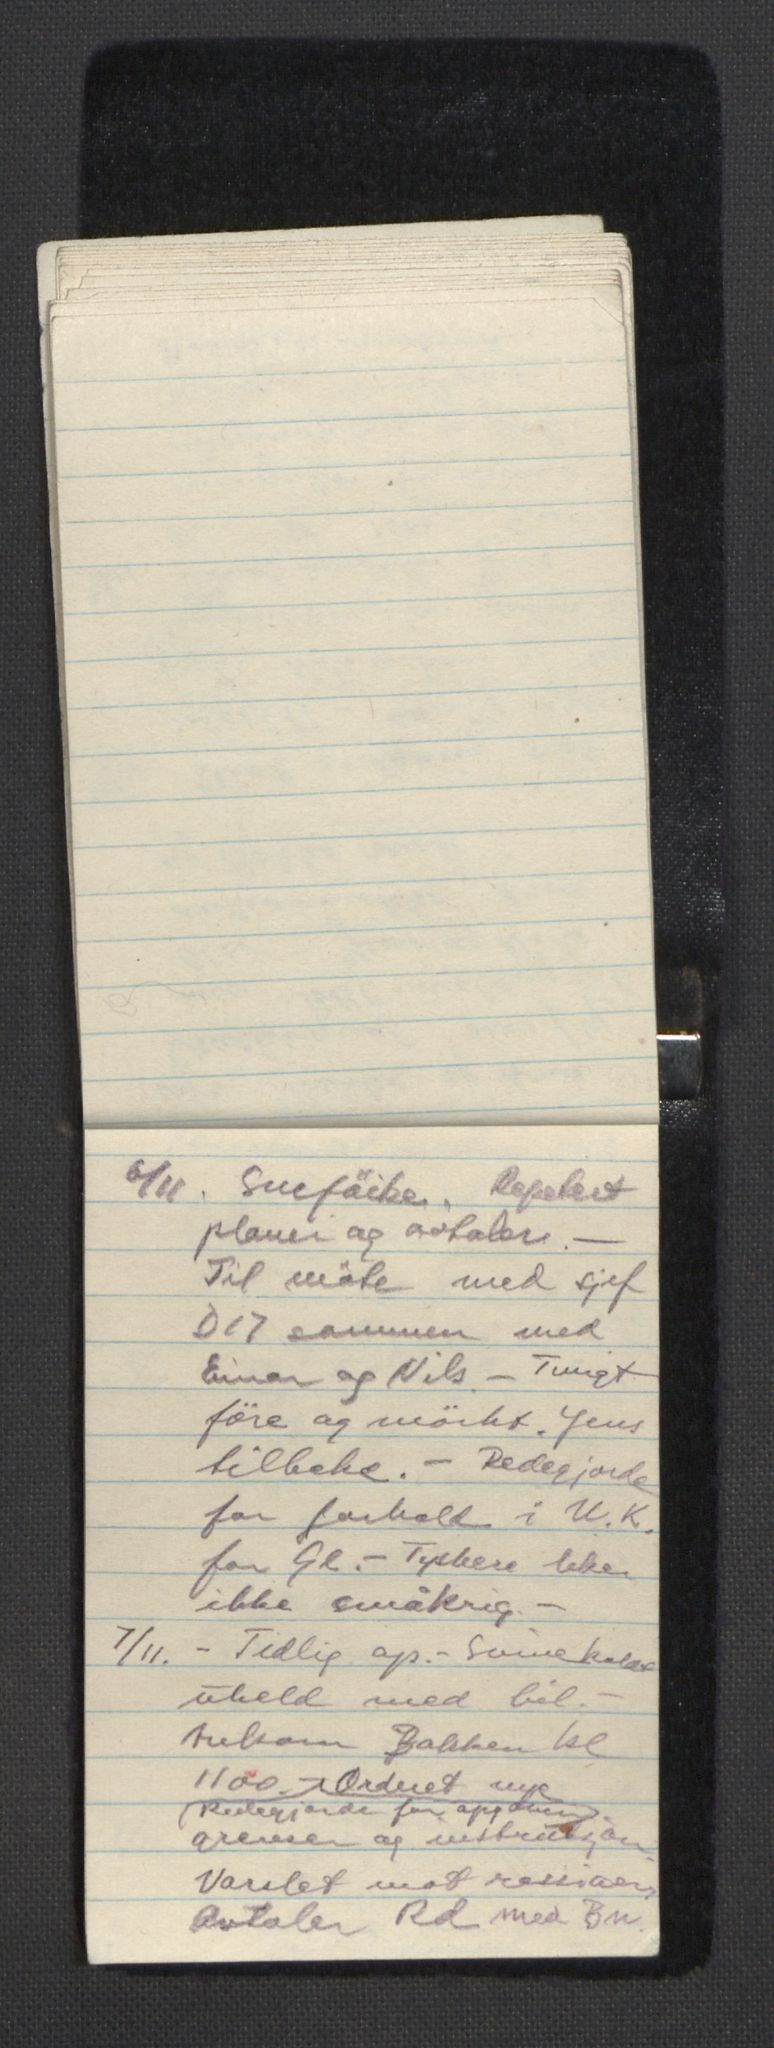 6/11. Sneföike. Repetert
planer og avtaler. —
Til möte med sjef
D17 sammen med
Einar og Nils. — Tungt
före og mörkt. Jens
tilbake. — Redegjorde
for forhold i U.K.
for Gl. — Tyskere liker
ikke småkrig. —
7/11. — Tidlig op. — Svinekaldt
uheld med bil. —
Ankom Bakken kl
1100. — Ordnet nye
(Redegjorde for opgaven).
grenser og instruksjon.
Varslet mot rassiaer.
Avtaler Rd med Bn.